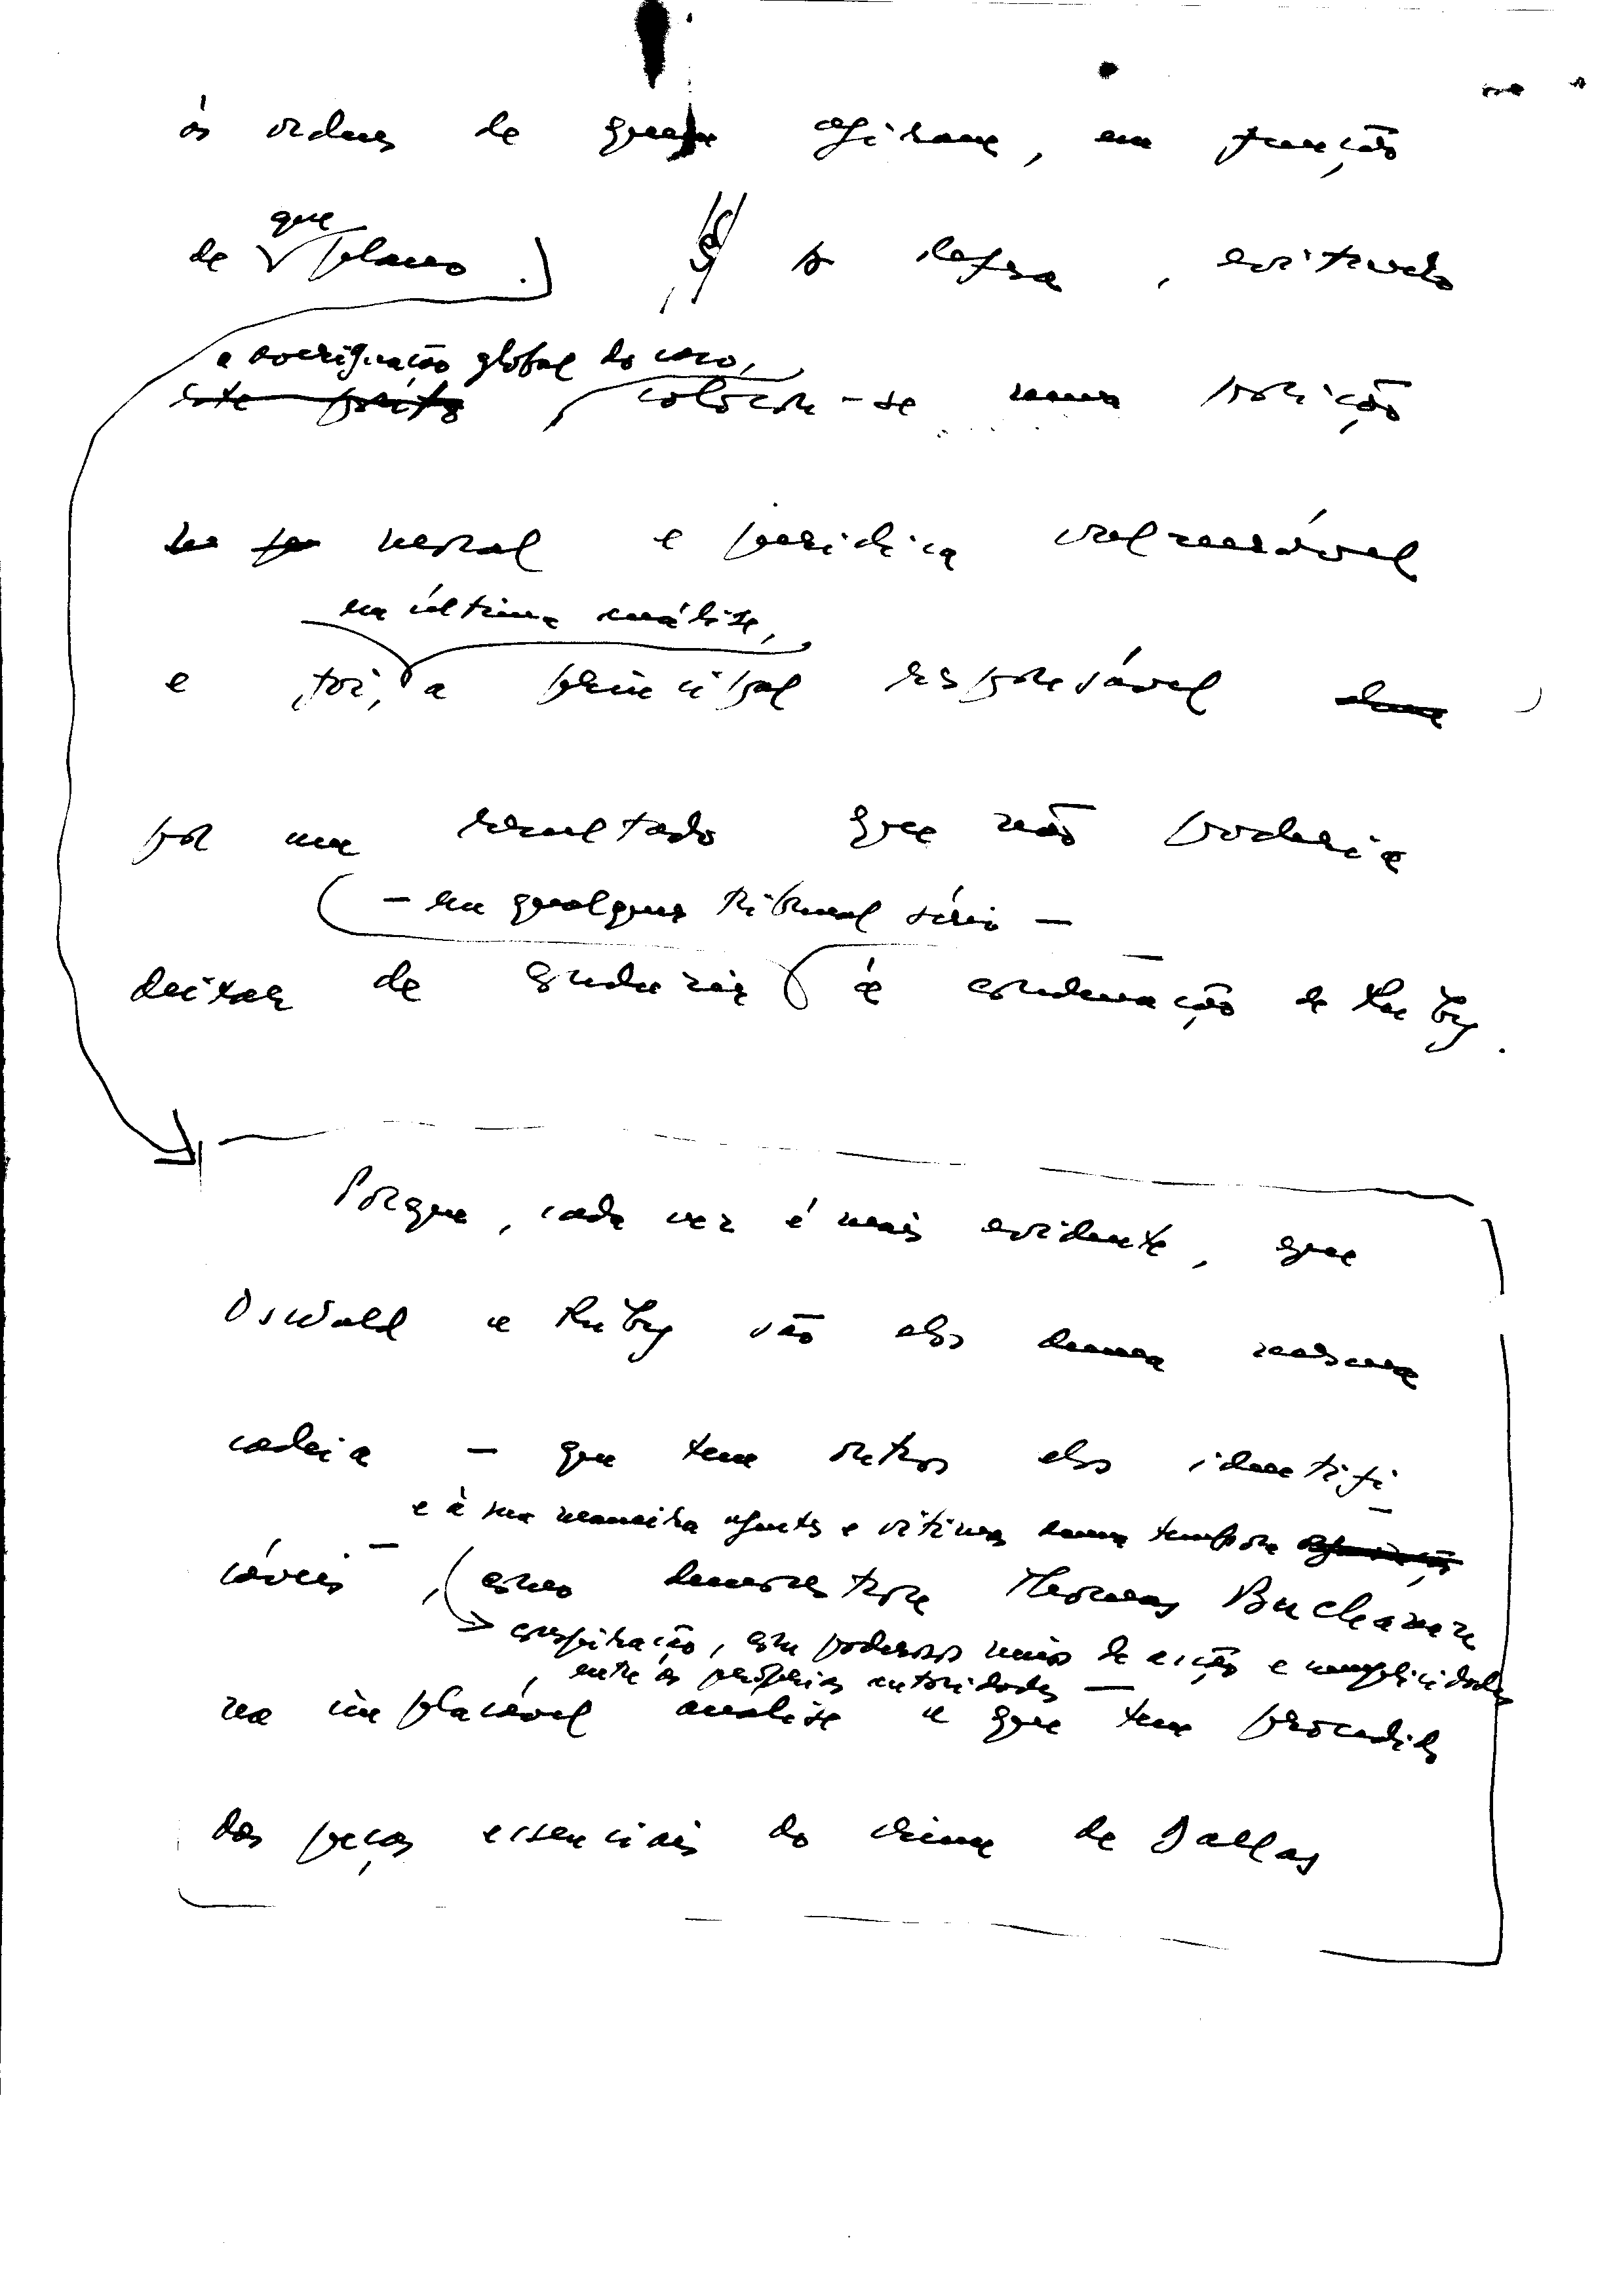 às ordens de quem agiram, em função
que
de plano.) A defesa, evitando
a averiguação global do caso,
este ponto colocou-se numa posição
moral e jurídica vulnerável
em última análise,
e foi, a principal responsável
por um resultado que não poderia
— em qualquer tribunal sério —
deixar de conduzir à condenação de Ruby.
Porque, cada vez é mais evidente, que
Oswald e Ruby são elos duma mesma
cadeia — que tem outros elos identifi-
e à sua maneira agentes e vítimas duma tenebrosa
cáveis —, como demonstrou Thomas Buchanan
conspiração, com poderosos meios de acção e cumplicidades
entre as próprias autoridades —
na implacável análise a que tem procedido
das peças essenciais do crime de Dallas